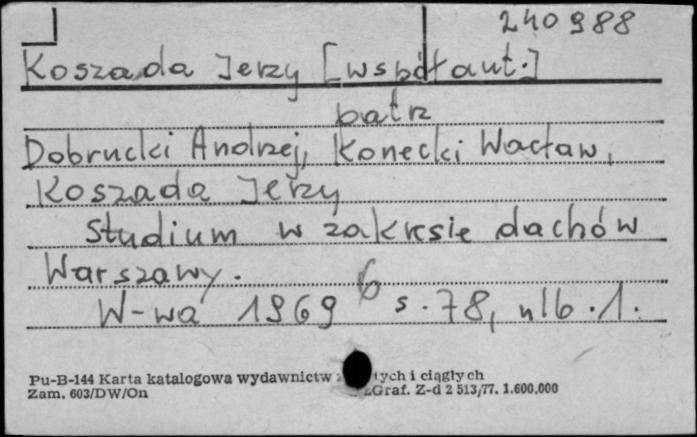 240988
Koszada Jerzy [współaut.]
patrz
Dobrucki Andrzej, Konecki Wacław,
Koszada Jerzy
Studium w zakresie dachów
Warszawy.
W-wa 1969 6 s. 78, nlb. 1.
Pu-B-144 Karta katalogowa wydawnictw i ciągłych
Zam. 603/DW/On Graf. Z-d 2 513/77. 1.600.000